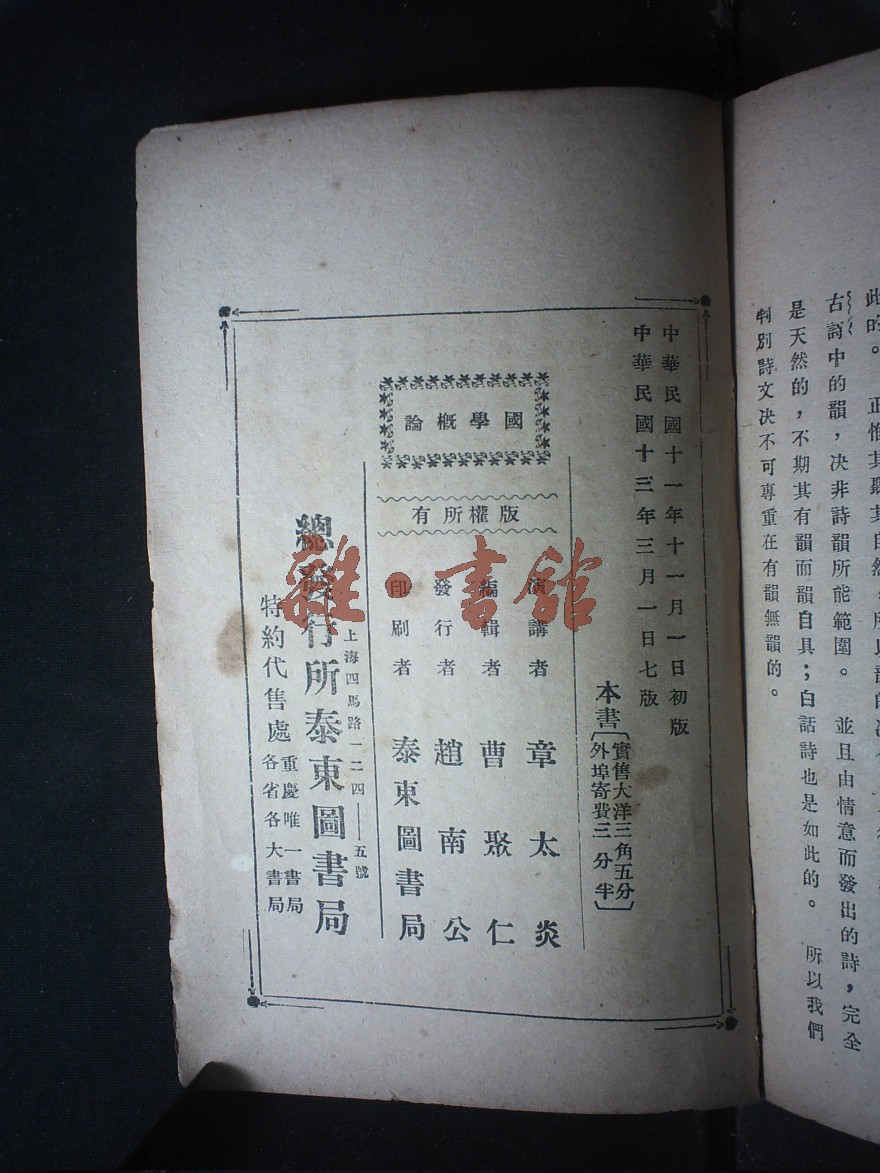 此的。
古詩中的韻，决非詩韻所能範圍。 並且由情意而發出的詩，完全
是天然的，不期其有韻而韻自具；白話詩也是如此的。 所以我們
判別詩文决不可專重在有韻無韻的。
中華民國十一年十一月一日初版
中華民國十三年三月一日七版
本書
實售大洋三角五分
外埠寄費三分半
國學概論
版權所有
演講者 章太炎
編輯者 曹聚仁
發行者 趙南公
印刷者 泰東圖書局
上海四馬路一二四——五號
總發行所泰東圖書局
特約代售處
重慶唯一書局
各省各大書局
雜·書館